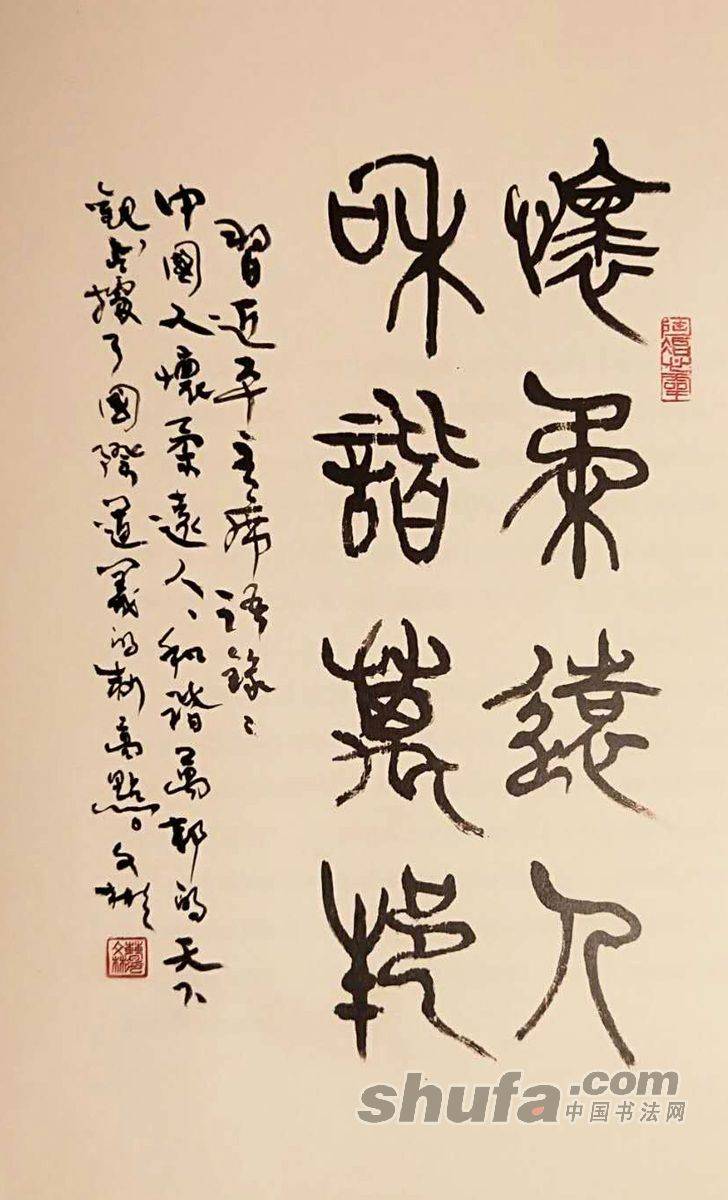 懷柔遠人
和諧萬邦
習近平主席語錄:
中國人懷柔遠人、和諧萬邦的天下
觀占據了國際道義的制高點。文彬
shufa.com
中国书法网